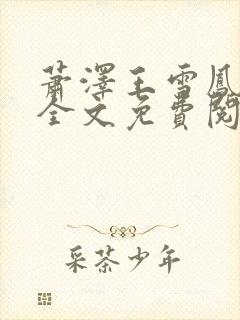 萧澤王雪鳳
全文免費閱
采茶少年